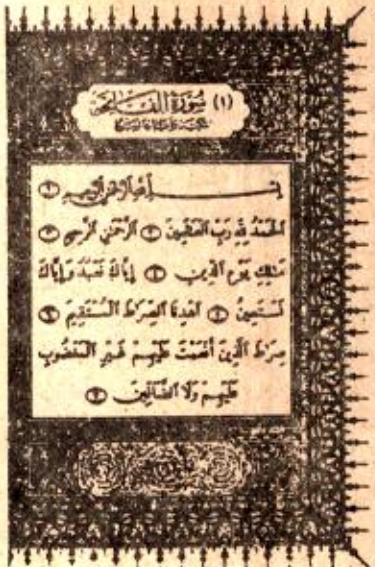 (١) سورة الفاتحة
بسم الله الرحمن الرحيم
الحمد لله رب العلمين الرحمن الرحيم
ملك يوم الدين إياك نعبد وإياك
نستعين اهدنا الصرط المستقيم
صرط الذين أنعمت عليهم غير المغضوب
عليهم ولا الضالين